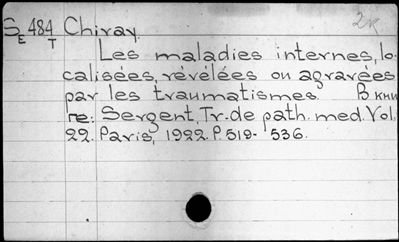 SE 484 T Chiray. 2k
Les maladies internes, lo-
calisées, révélées ou agravées
par les traumatismes. В кни
ге: Sergent, Tr. de path. med. Vol.
22. Paris, 1922. P. 519-536.